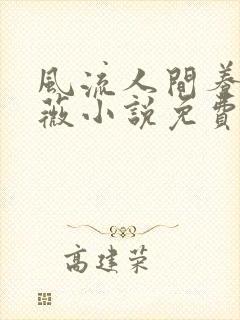 風流人間養
薇小說免費
高建荣